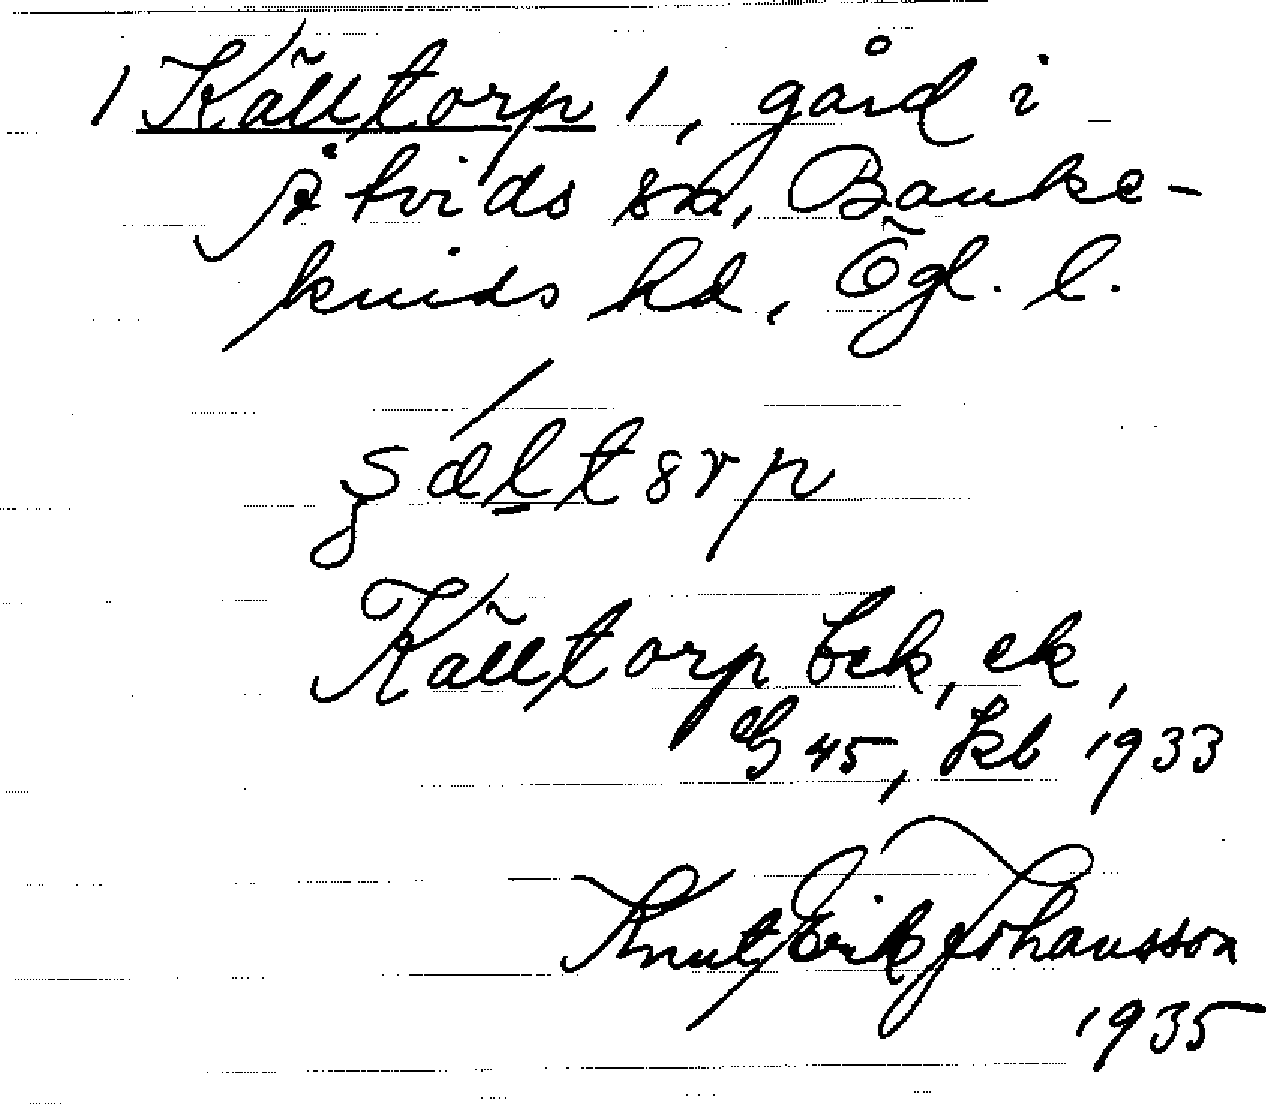 1 Källtorp 1, gård i
Åtvids sn, Banke-
kinds hd, Ögl. l.
Källtorp bek, ek,
GG 45, kb 1933
Knut Erik Johansson
1935